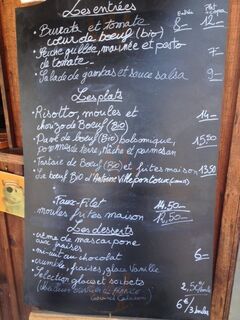 Les entrées
Entrée Plat
- Burrata et tomate 8- 12-
cœur de bœuf (bio)
- Pêche grillée, marinée et pesto 7
de tomate
- Salade de gambas et sauce salsa 9-
Les plats
- Risotto, moules et 14-
chorizo de Bœuf (Bio)
- Pavé de bœuf (Bio) balsamique, 15,50
pomme de terre, mâche et parmesan
- Tartare de Bœuf (Bio) et frites maison 13,50
Le bœuf Bio d'Antoine
- Faux-Filet 14,50-
- moules frites maison 12,50-
Les desserts
- crème de mascarpone
aux fraises
- mi-cuit au chocolat 6-
- crumble, fraises, glace Vanille
- Sélection glaces et sorbets 2,50
6€/3 boules